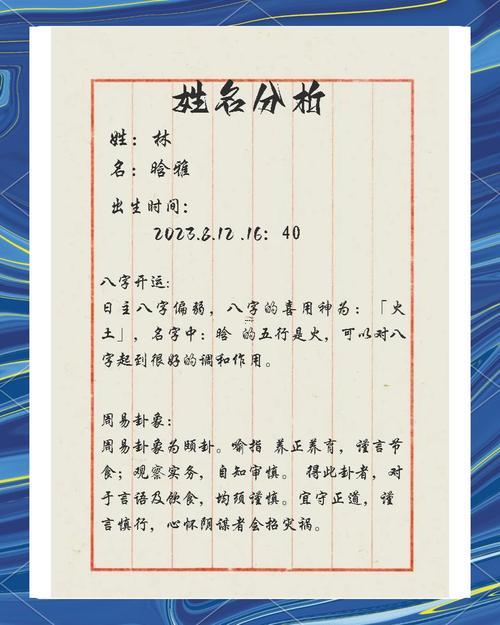 姓名分析
姓：林
名：晗雅
出生时间：
2023.8.12.16：40
八字开运：
日主八字偏弱，八字的喜用神为：「火
土」，名字中：晗 的五行是火，可以对八
字起到很好的调和作用。
周易卦象：
周易卦象为颐卦。喻指 养正养育，谨言节
食；观察实务，自知审慎。 得此卦者，对
于言语及饮食，均须谨慎。宜守正道，谨
言慎行，心怀阴谋者会招灾祸。